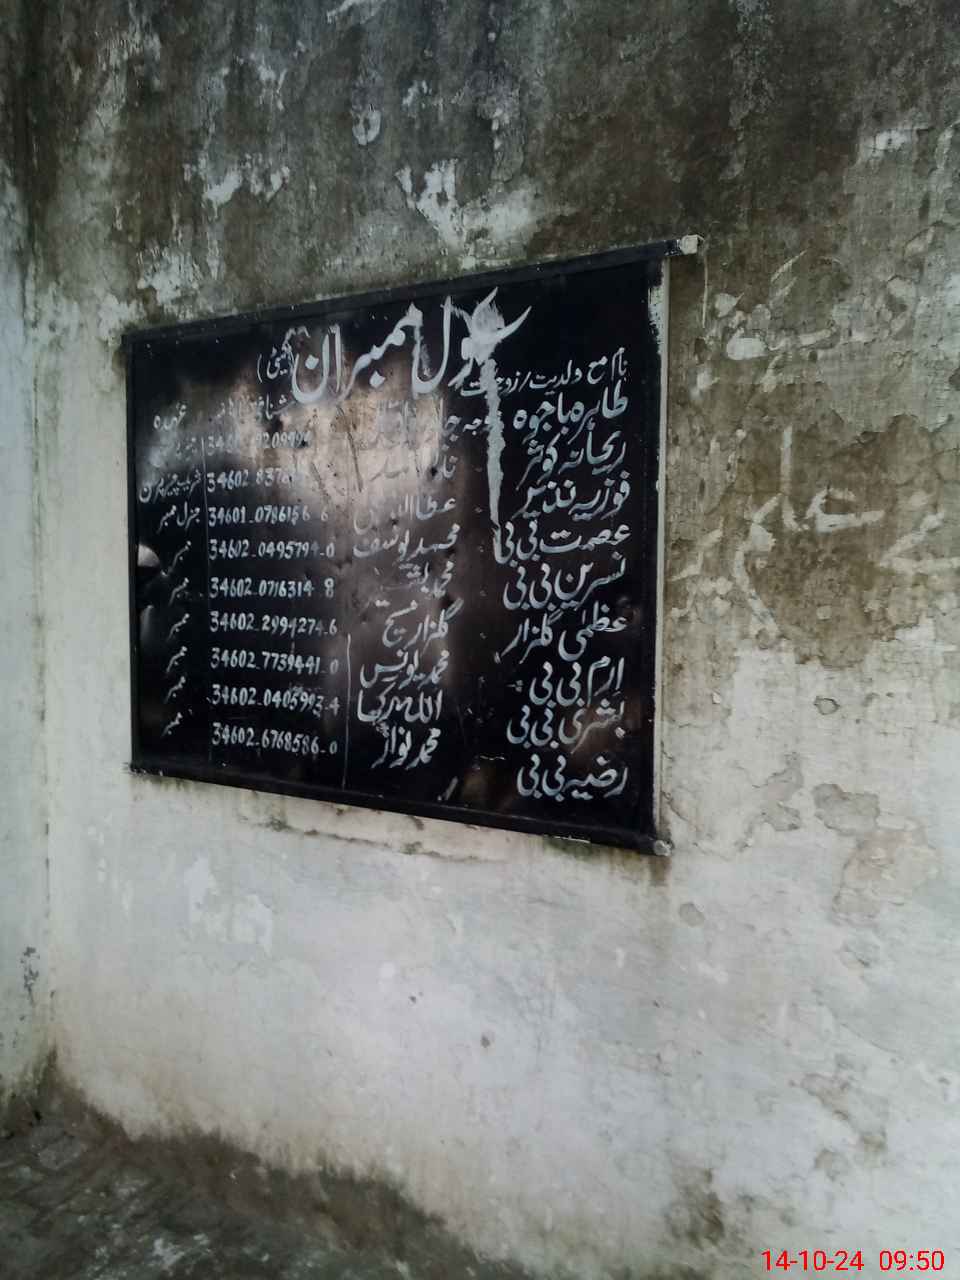 سکول ممبران (کمیٹی)
نام مع ولدیت/زوجیت عہدہ
طاہرہ باجوہ زوجہ
ریحانہ کوثر 34602
فوزیہ نذیر 34601-0786156-6 جنرل ممبر
عصمت بی بی محمد یوسف 34602-0495794-0 ممبر
نسرین بی بی محمد 34602-0716314-8 ممبر
عظمٰی گلزار گلزار مسیح 34602-2994274-6 ممبر
ارم بی بی محمد یونس 34602-7739441-0 ممبر
بشریٰ بی بی اللہ رکھا 34602-0405993-4 ممبر
رضیہ بی بی محمد نواز 34602-6768586-0 ممبر
14-10-24 09:50